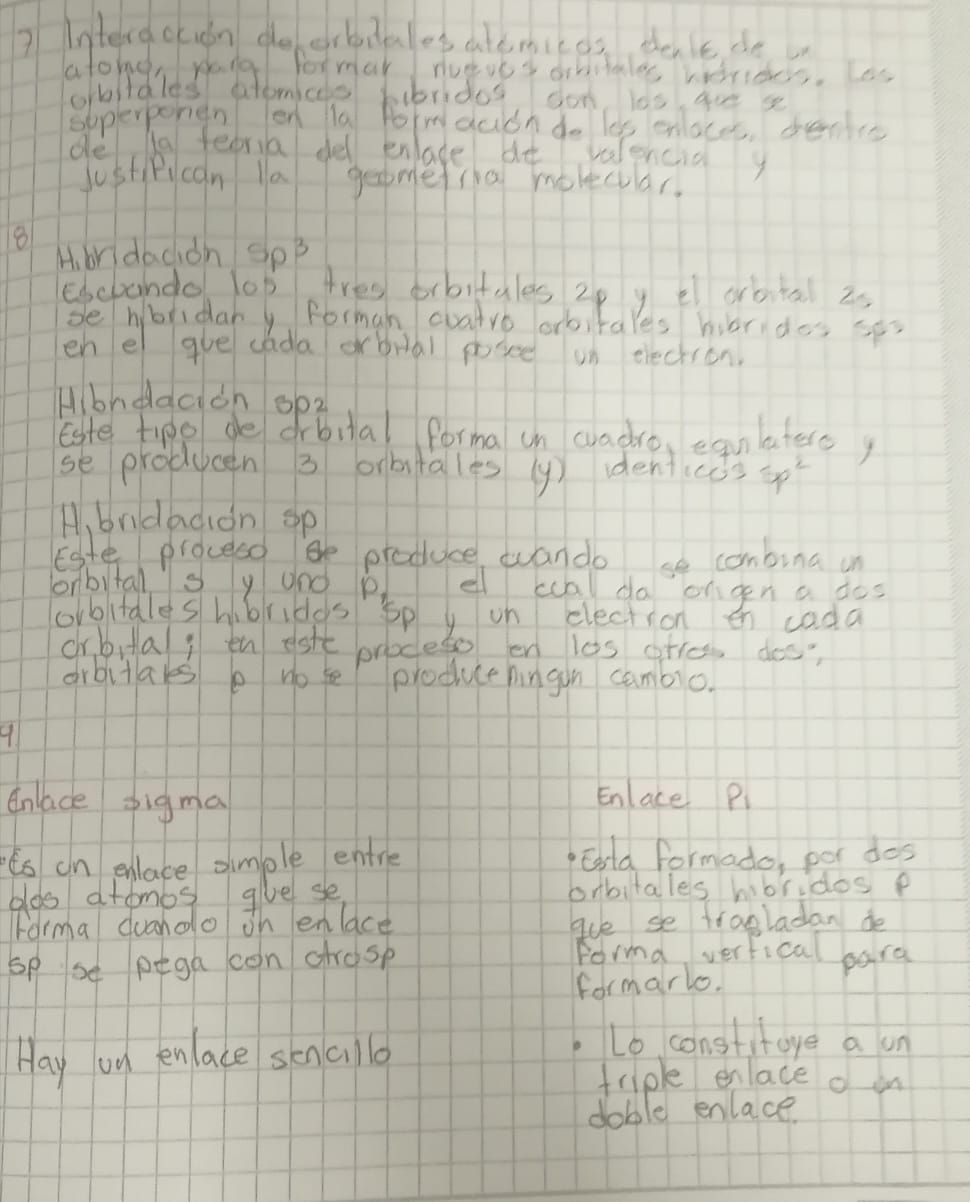 7 Interacción de orbitales atómicos, dentro de un
atomo, para formar nuevos orbitales hibridos. Los
orbitales atomicos hibridos son los que se
superponen en la formación de los enlaces, dentro
de la teoria del enlace de valencia y
Justifican la geometria molecular.
8
Hibridación sp3
los tres orbitales 2p y el orbital 2s
se hibridan y Forman cuatro orbitales hibridos sp3
en el que cada orbital posee un electron.
Hibridación sp2
Este tipo de orbital forma un cuadro, equilatero y
se producen 3 orbitales (y) identicos sp2
Hibridación sp
Este proceso se produce cuando se combina un
orbital s y uno p, el cual da origen a dos
orbitales hibridos sp y un electron en cada
orbital; en este proceso en los otros dos,
orbitales p no se produce ningun cambio.
9
Enlace sigma
Enlace Pi
•Es un enlace simple entre
dos atomos que se
Forma cuando un enlace
sp se pega con otro sp
Hay un enlace sencillo
•Esta formado, por dos
orbitales hibridos p
que se trasladan de
Forma vertical para
formarlo.
• Lo constituye a un
triple enlace o un
doble enlace.